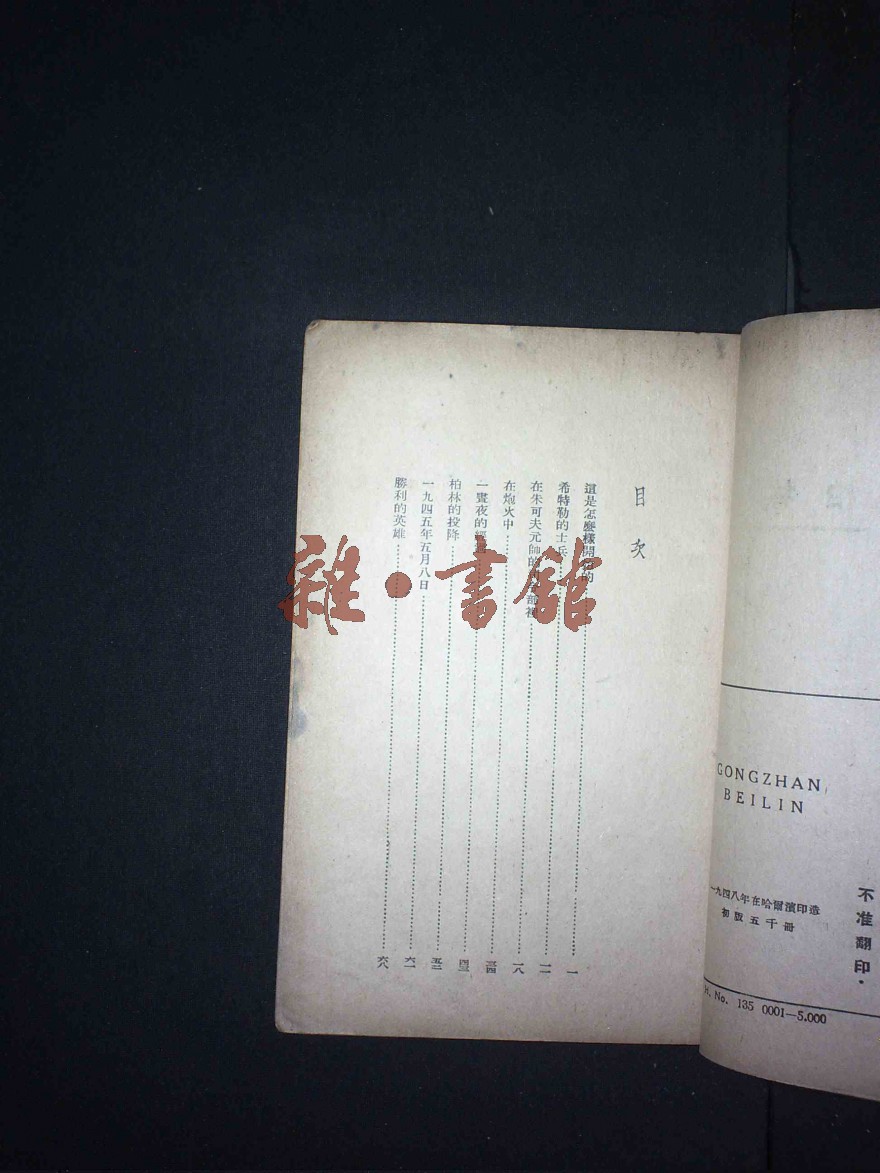 不准翻印·
GONGZHAN
BEILIN
一九四八年在哈爾濱印造
初版五千冊
No. 135 0001—5.000
目次
這是怎麼樣開始的 一
希特勒的士兵
在朱可夫元帥的 部裡 一八
在炮火中 三四
一晝夜的經過 四三
柏林的投降
一九四五年五月八日 六一
勝利的英雄 六八
雜·書館